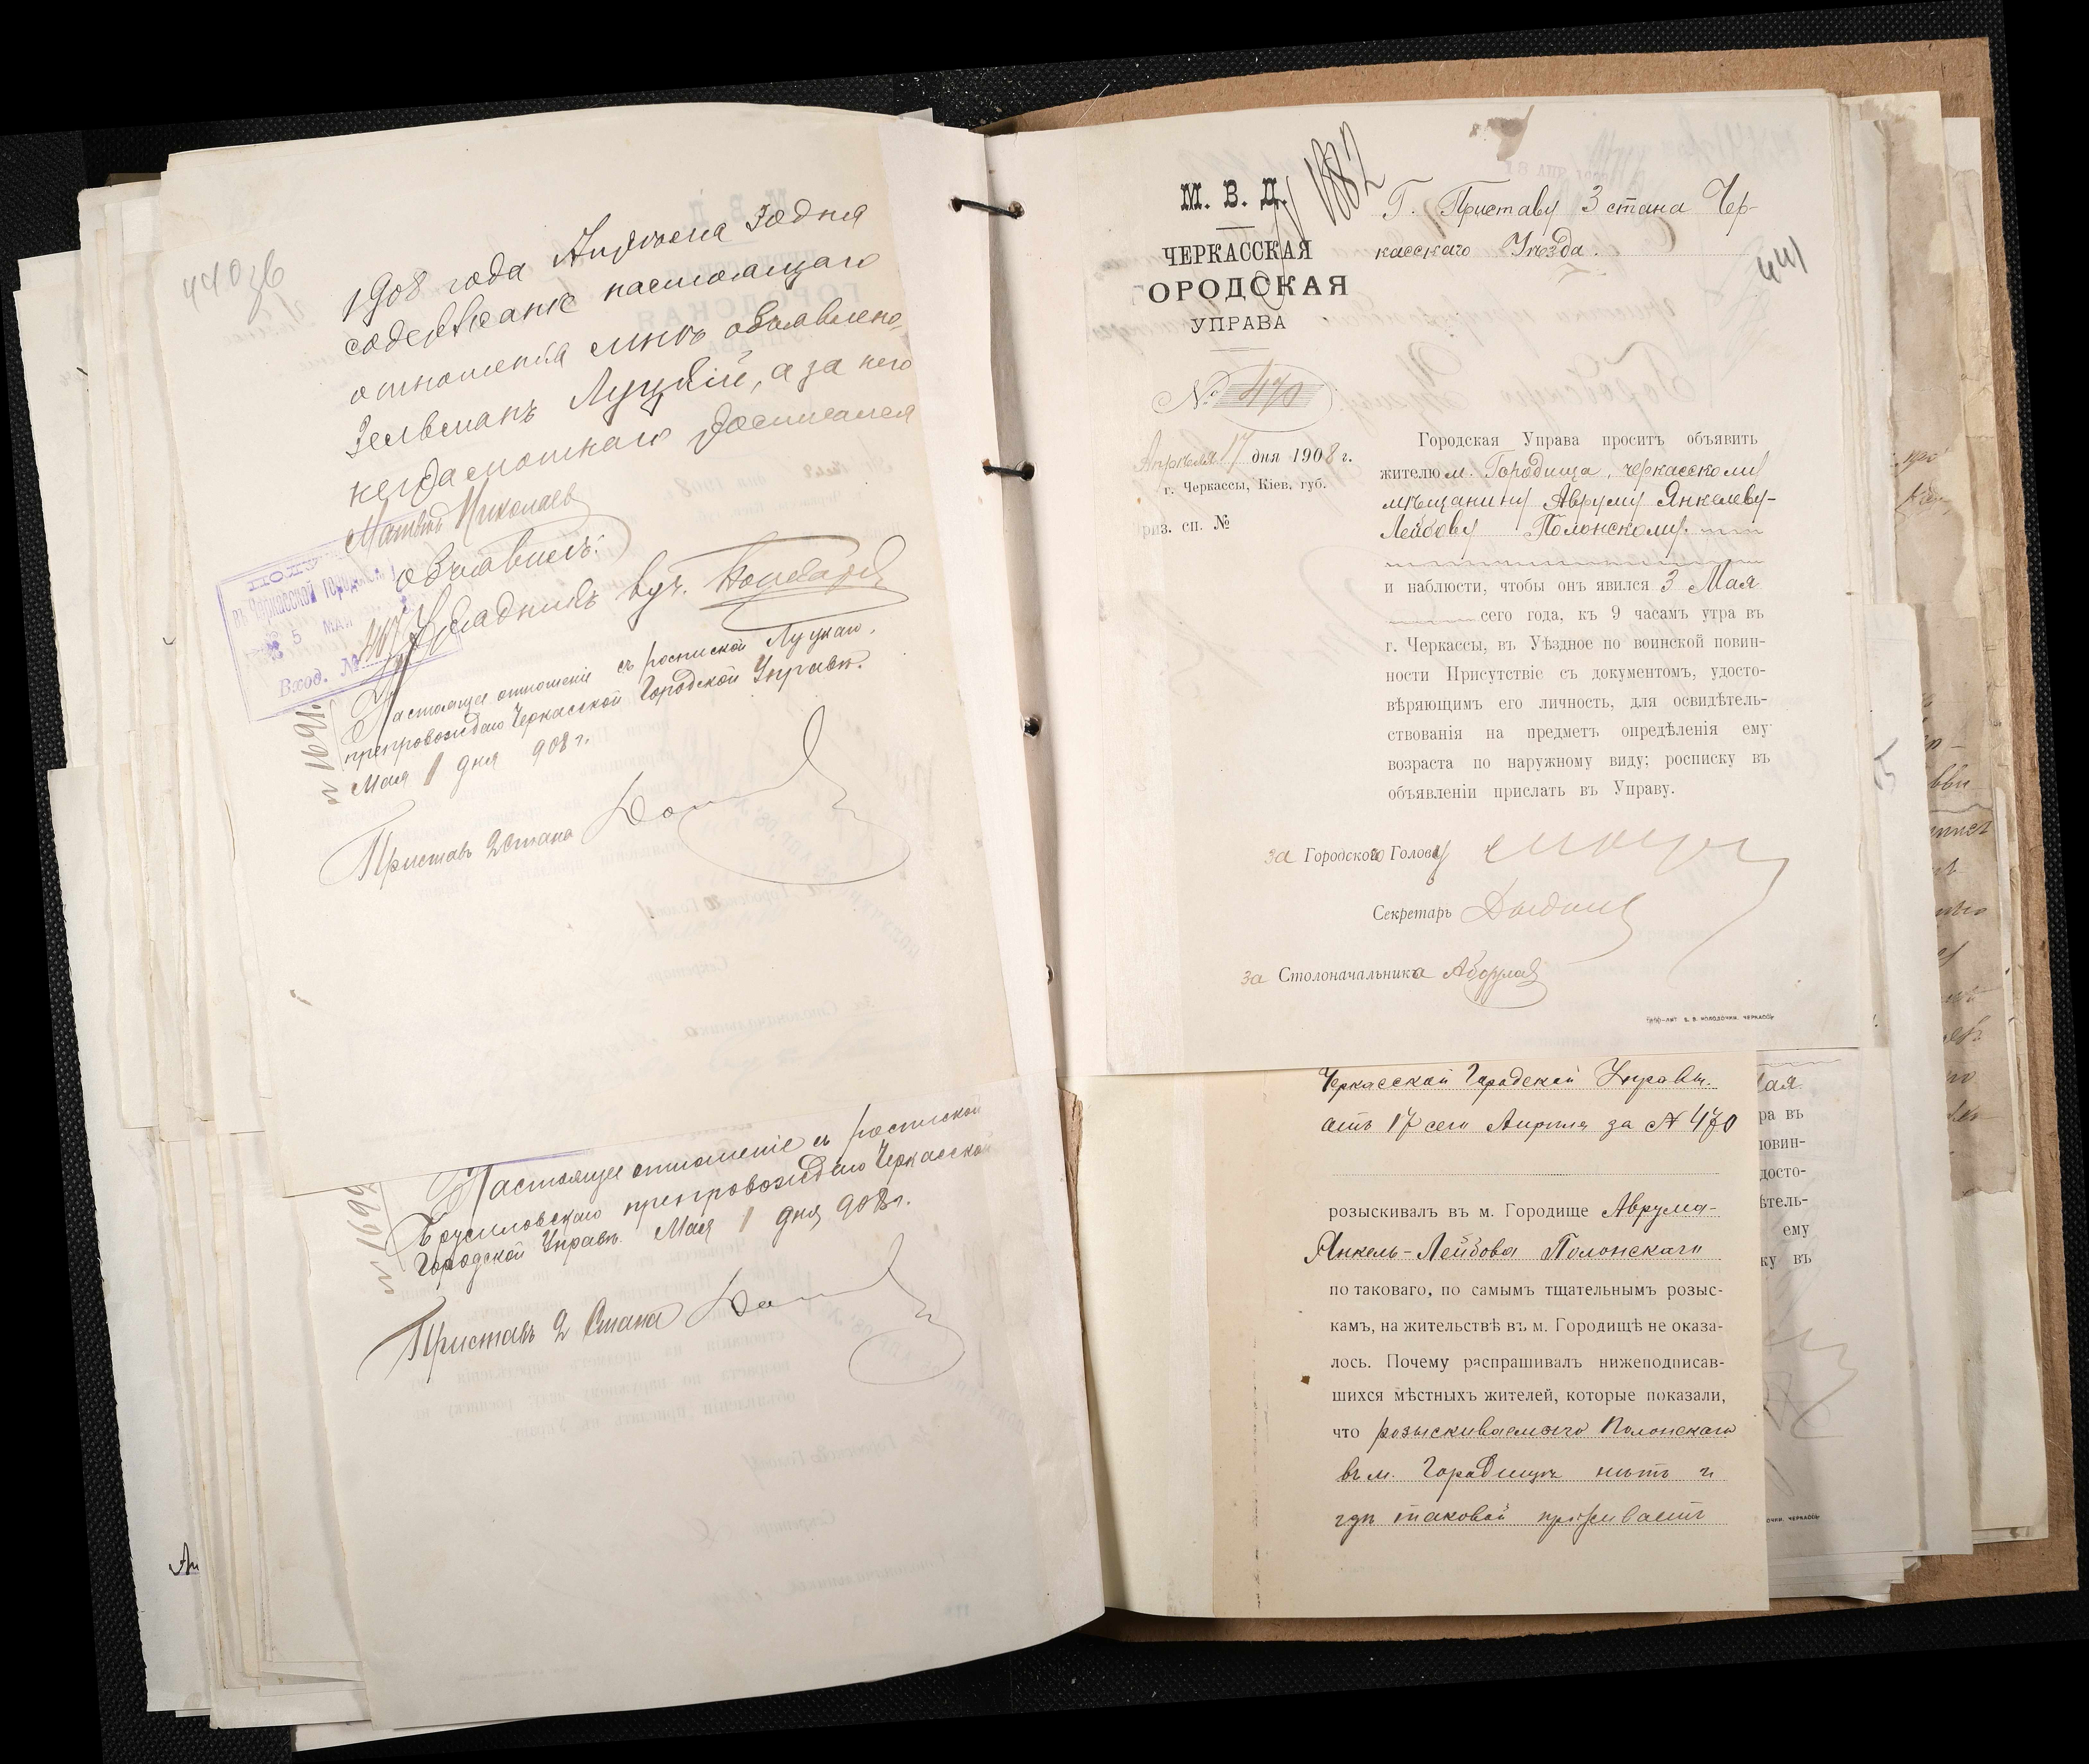 440об
1908 года Апреля 30 дня
содержание настоящаго
отношенія мнѣ объявлено,
Зельманъ Луцкій, а за него
неграмотнаго росписался
Матвѣй Николаев
объявилъ:
Урядникъ
въ Черкасской Городской
5 МАЙ
Вход. №
№ 1691.
Настоящее отношеніе съ роспиской Луцкаго,
препровождаю Черкасской Городской Управѣ.
Мая 1 дня 908 г.
Приставъ 2 стана
Настоящее отношеніе съ роспиской
Брусиловскаго препровождаю Черкасской
Городской Управѣ. Мая 1 дня 908 г.
Приставъ 2 Стана
1882
М. В. Д.
ЧЕРКАССКАЯ
ГОРОДСКАЯ
УПРАВА
№ 470
Апрѣля 17 дня 1908 г.
г. Черкассы, Кіев. губ.
приз. сп. №
Г. Приставу 3 стана Чер-
касскаго Уѣзда.
441
Городская Управа проситъ объявить
жителю м. Городища, черкасскому
мѣщанину Авруму Янкелеву-
Лейбову Полонскому.
и наблюсти, чтобы онъ явился 3 Мая
сего года, къ 9 часамъ утра въ
г. Черкассы, въ Уѣздное по воинской повин-
ности Присутствіе съ документомъ, удосто-
вѣряющимъ его личность, для освидѣтель-
ствованія на предметъ опредѣленія ему
возраста по наружному виду; росписку въ
объявленіи прислать въ Управу.
за Городского Голову
Секретарь
за Столоначальника
Черкасской Городской Управы.
отъ 17 сего Апрѣля за № 470
розыскивалъ въ м. Городище Аврума-
Янкель-Лейбова Полонскаго
по таковаго, по самымъ тщательнымъ розыс-
камъ, на жительствѣ въ м. Городищѣ не оказа-
лось. Почему распрашивалъ нижеподписав-
шихся мѣстныхъ жителей, которые показали,
что розыскиваемаго Полонскаго
въ м. Городищѣ нѣтъ и
гдѣ таковой проживаетъ
Мая
ра въ
повин-
досто-
ѣтель-
ему
ку въ